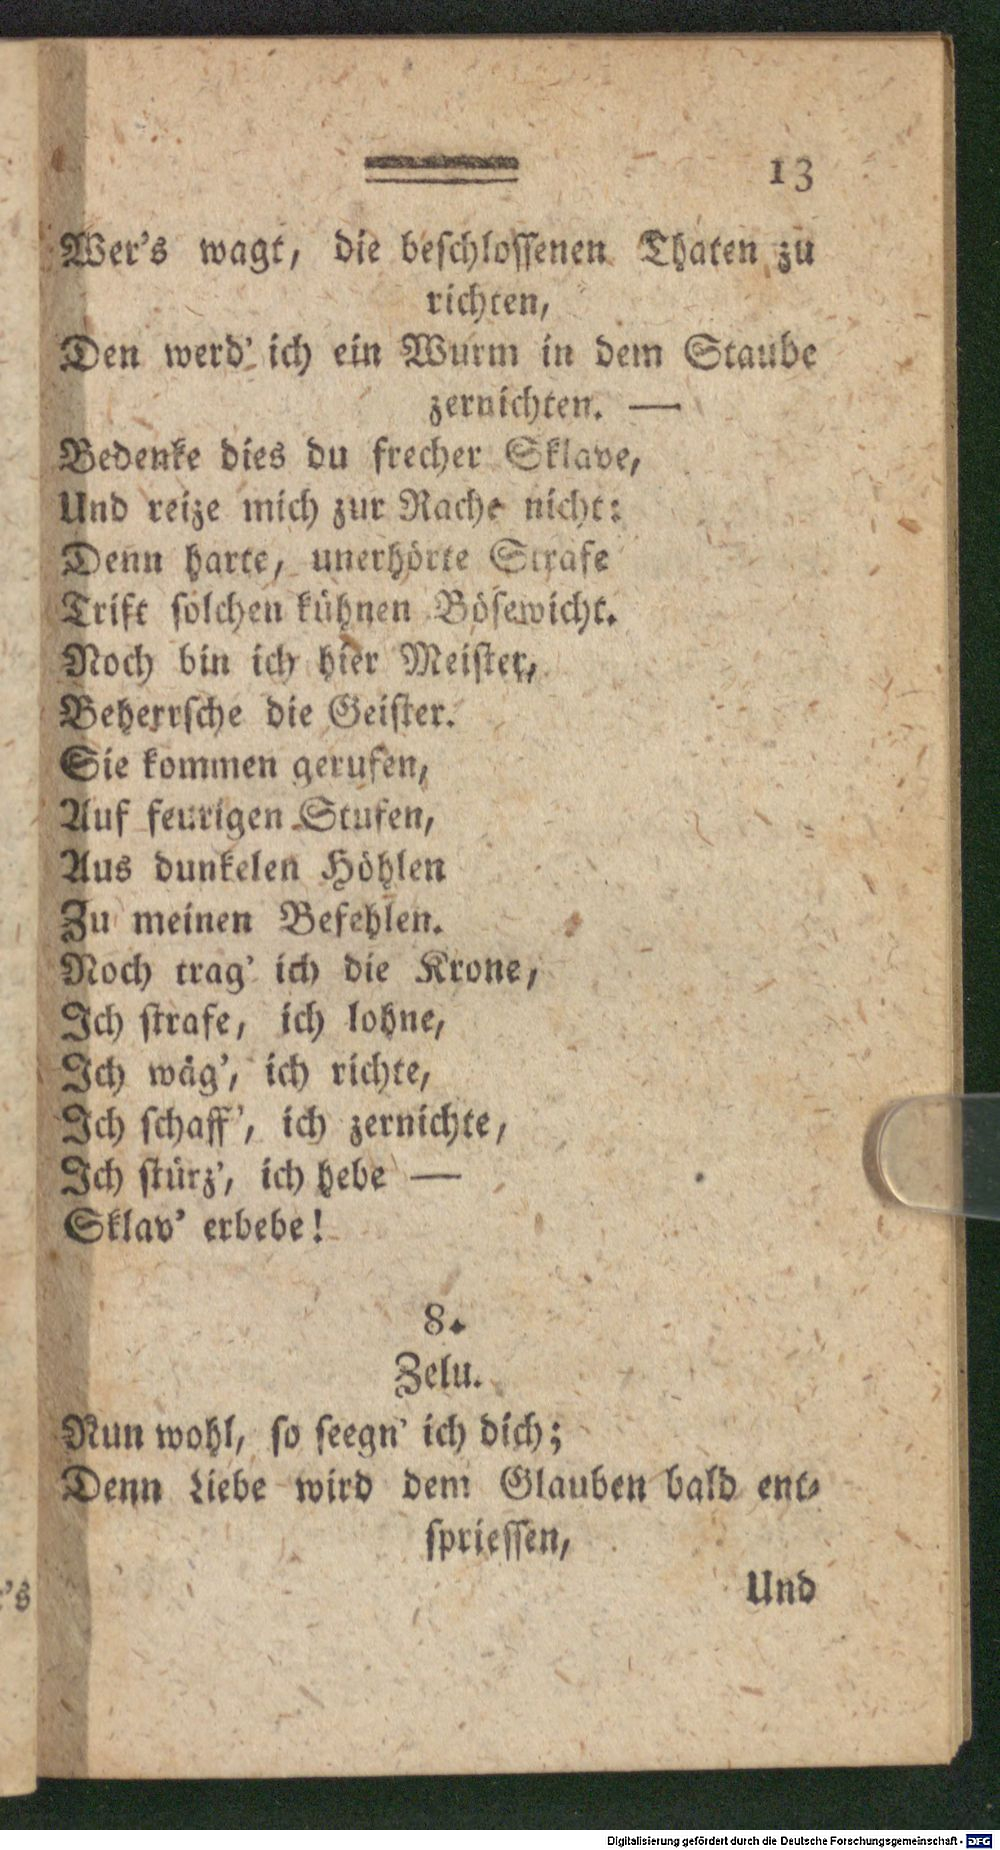 13
Wer's wagt, die beschlossenen Thaten zu
richten,
Den werd' ich ein Wurm in dem Staube
zernichten. —
Bedenke dies du frecher Sklave,
Und reize mich zur Rache nicht:
Denn harte, unerhörte Strafe
Trift solchen kühnen Bösewicht.
Noch bin ich hier Meister,
Beherrsche die Geister.
Sie kommen gerufen,
Auf feurigen Stufen,
Aus dunkelen Höhlen
Zu meinen Befehlen.
Noch trag' ich die Krone,
Ich strafe, ich lohne,
Ich wäg', ich richte,
Ich schaff', ich zernichte,
Ich stürz', ich hebe —
Sklav' erbebe!
8.
Zelu.
Nun wohl, so seegn' ich dich;
Denn Liebe wird dem Glauben bald ent-
spriessen,
Und
Digitalisierung gefördert durch die Deutsche Forschungsgemeinschaft - DFG